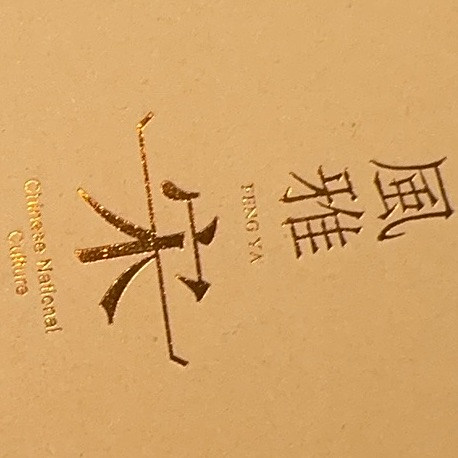 風雅
FENG YA
宋
Chinese National
Culture